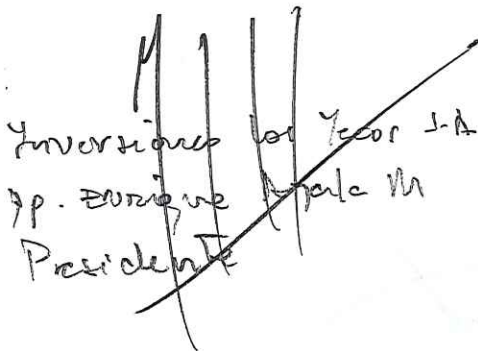 Inversiones los Yecos S.A
pp. Enrique Ayala M
Presidente